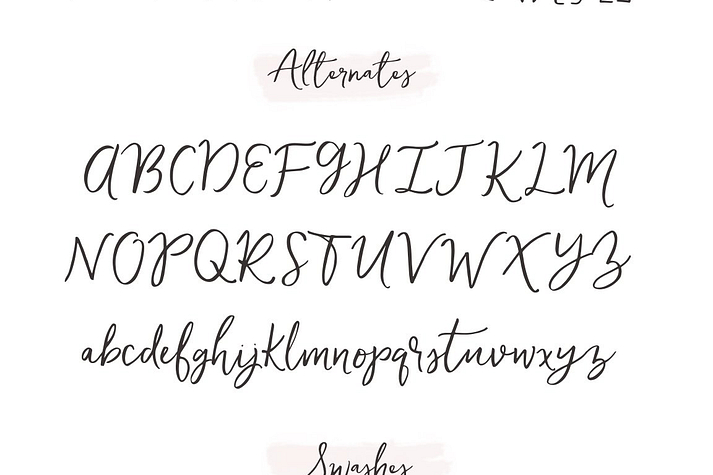 Alternates
ABCDEFGHIJKLM
NOPQRSTUVWXYZ
abcdefghijklmnopqrstuvwxyz
Swashes